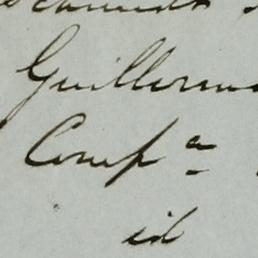 Guillermo
Comp.ª
id